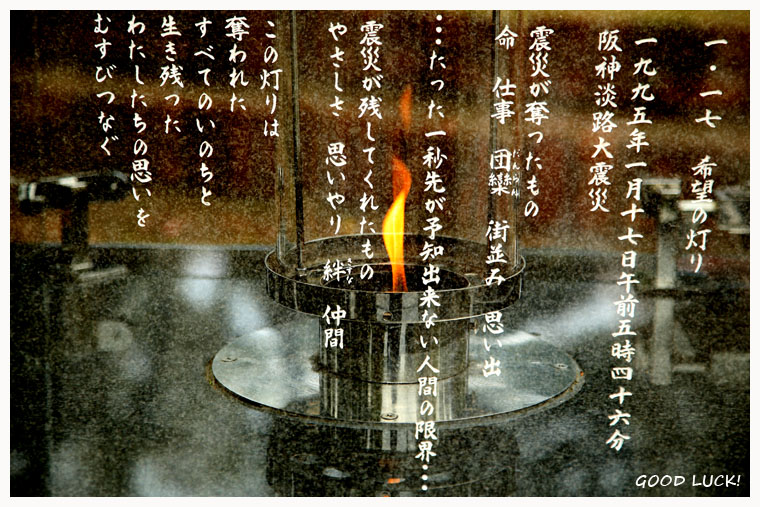 一・一七 希望の灯り
一九九五年一月十七日午前五時四十六分
阪神淡路大震災
震災が奪ったもの
命 仕事 団欒 街並み 思い出
だんらん
・・・たった一秒先が予知出来ない人間の限界・・・
震災が残してくれたもの
やさしさ 思いやり 絆 仲間
きずな
この灯りは
奪われた
すべてのいのちと
生き残った
わたしたちの思いを
むすびつなぐ
GOOD LUCK!